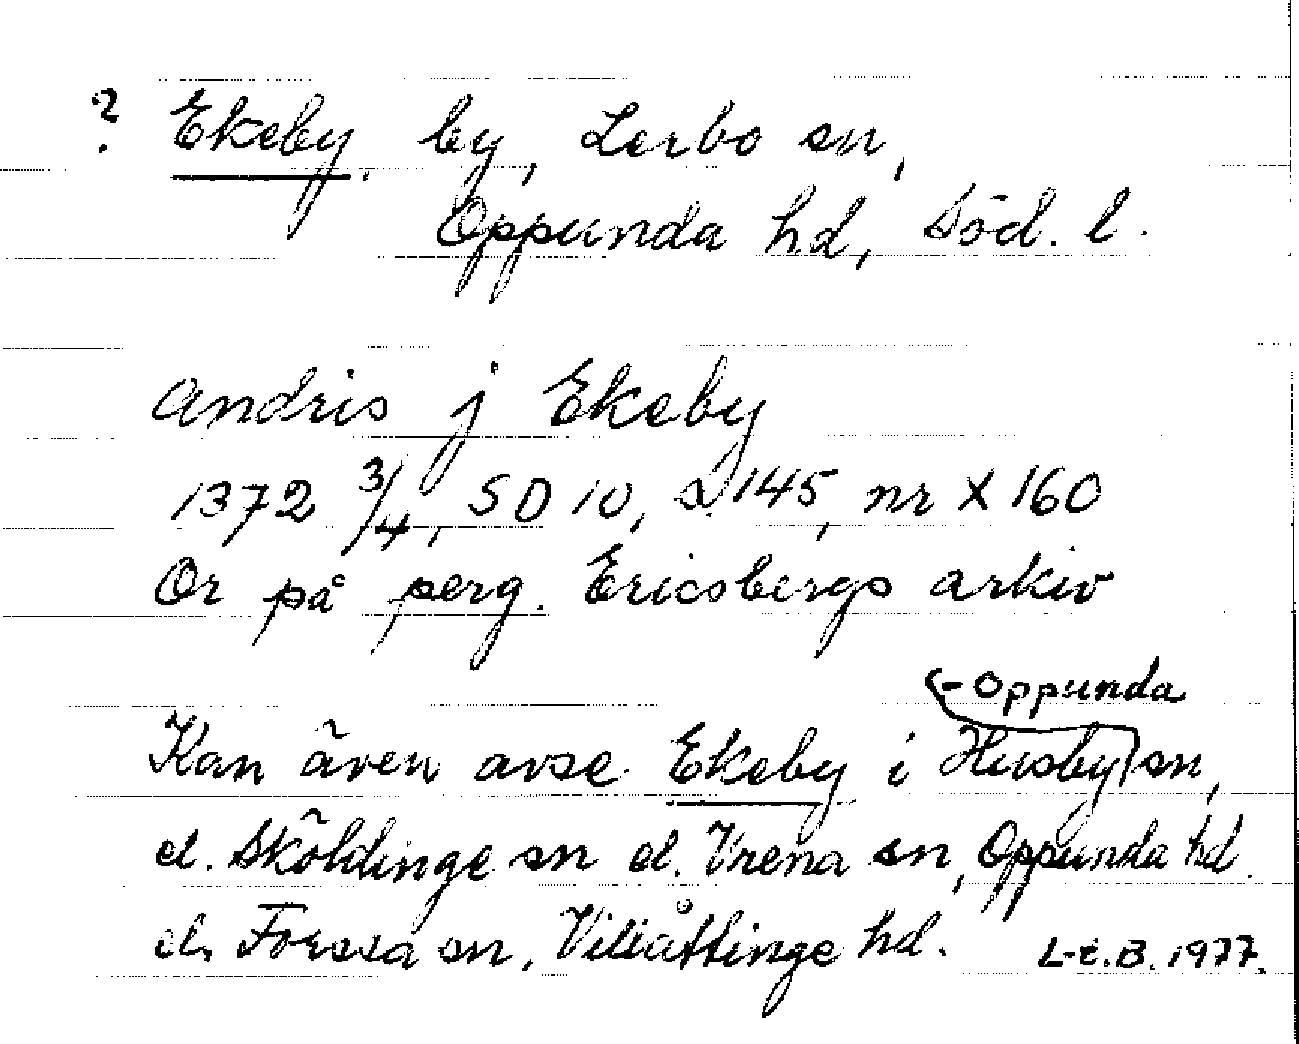 ? Ekeby, by, Lerbo sn,
Oppunda hd, Söd. l.
Andris j Ekeby
1372 3/4, SD 10, s. 145, nr X 160
Or på perg. Ericsbergs arkiv
(-Oppunda
Kan även avse Ekeby i Husby) sn,
el. Sköldinge sn el. Vrena sn, Oppunda hd.
el. Forssa sn, Villåttinge hd. L-E.B. 1977.